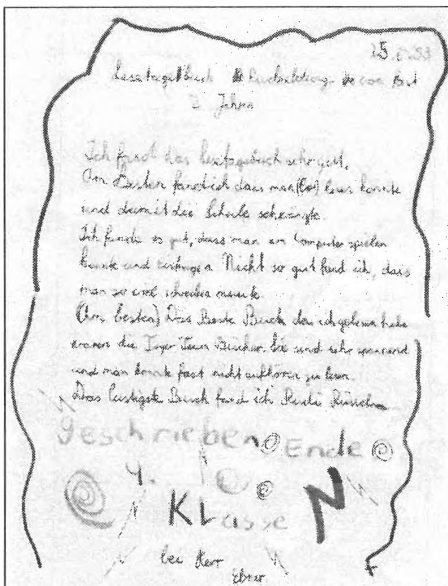 25.
Lesetagebuch
2 Jahren
Ich fand das lesetagebuch sehr gut.
Am Besten fand ich dass man lesen konnte
und damit die Schule schwänzte.
Ich fande es gut, dass man am Computer spielen
konnte und Nicht so gut fand ich, dass
man so viel schreiben musste.
(Am besten) Das Beste Buch das ich gelesen habe
waren die Tiger Team Bücher. Sie sind sehr spannend
und man konnte fast nicht aufhören zu lesen.
Das lustigste Buch fand ich Rudi Rüssel
geschrieben Ende
4.
Klasse N
bei Herr
Ebner